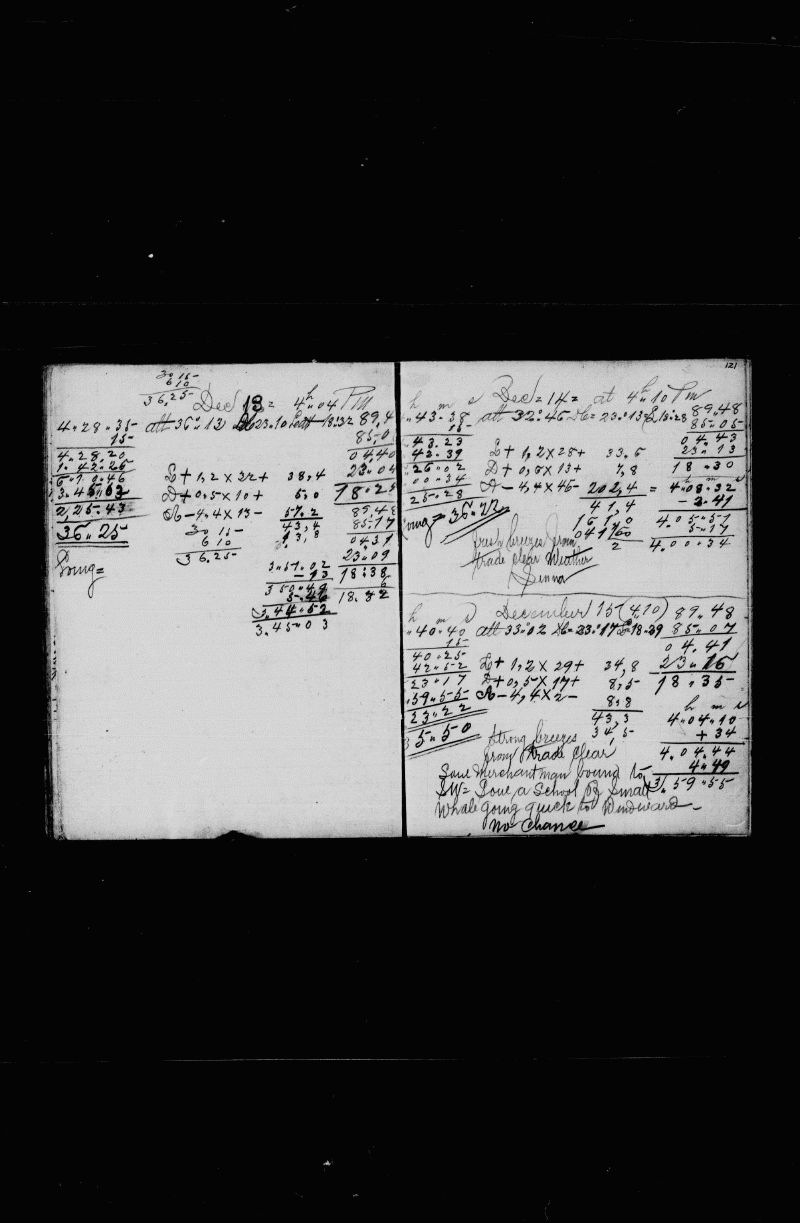 30 15
6 10
36.25
Dec 13 = 4h 04 PM
4.28.35 alt 36:13 89,4
15 85,0
4.28.20 04,40
1.42.26 23.04
6.10.46 L + 1,2 x 32 + 38,4 18.25
3.45.03 D + 0,5 x 10 + 5,0
2,25.43 A - 4,4 x 13 - 57.2 89.48
36.25 30 15 43,4 85.17
6 10 13,8 04.31
36.25 23.09
Going = 3.57.02 18:38
- 13 6
3 50.49 18.32
5.46
3.44.52
3.45.03
121
Dec = 14 = at 4h 10 Pm
h m s
43.38 alt 32:46 D = 23:13 L 18.28 89.48
15 85.05
43.23 04.43
42.39 L + 1,2 x 28 + 33.6 23.13
26.02 D + 0,6 x 13 + 7,8 18.30
00.34 h m s
25.28 A - 4,4 x 46 - 202,4 = 4.08.32
41,4 - 2.41
36.22 161,0 4.05.51
fresh breezes from 5.17
trade clear Weather 2 4.00.34
December 15 (4.10) 89.48
h m s
40.40 alt 33:02 D = 23:17 L = 18.29 85.07
15 04.41
40.25 L + 1,2 x 29 + 34,8 23.16
42.52 D + 0,5 x 17 + 8,5 18.35
23.17 A - 4,4 x 2 - 8,8 h m s
59.55 43,3 4.04.10
23.22 34,5 + 34
35.50 Strong breezes 4.04.44
from trade clear 4.49
Saw Merchantman bound to 3.59.55
SW = Saw a School of Small
Whale going quick to Windward -
No Chance